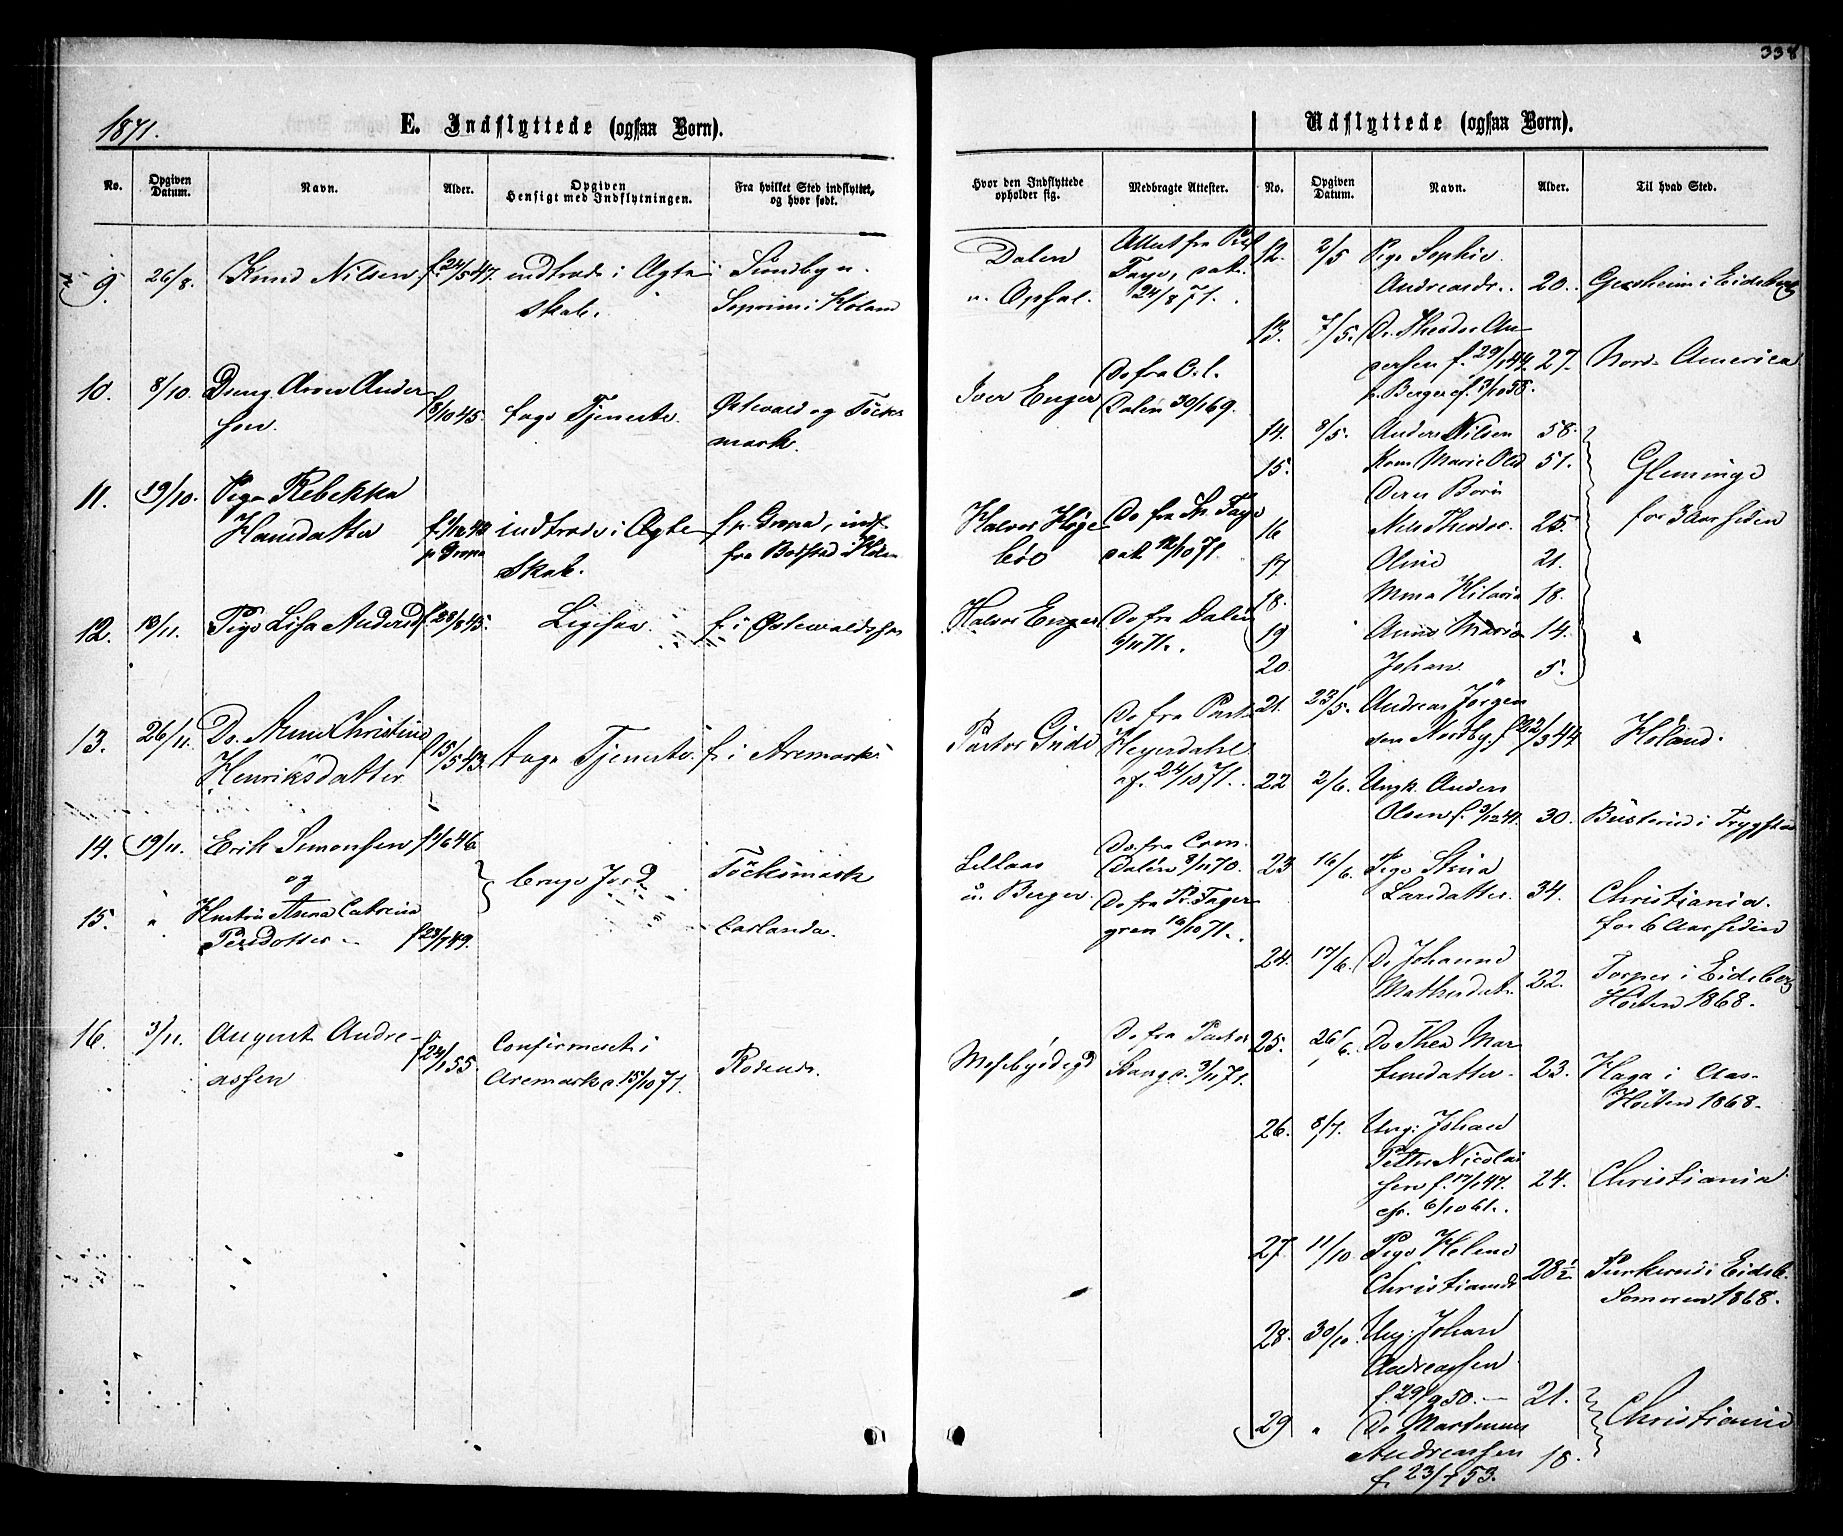 338
1871.
E. Indflyttede (ogsaa Børn).
No.
Opgiven Datum.
Navn.
Alder.
Opgiven Hensigt med Indflytningen.
Fra hvilket Sted indflyttet, og hvor født.
Hvor den Indflyttede opholder sig.
Medbragte Attester.
9. 26/8. Knud Nilsen f. 24/5 47. indtræde i Ægte Sundby u.
skab. Soprim i Høland
Dalen Attest fra
u. Ophal. 24/8 71.
10. 8/10. Dreng Arne Ander f. 8/10 45. tage Tjeneste. Østevald og Töcks
sen. mark.
Iver Enger Do fra C. l.
Dalen 30/1 69.
11. 19/10. Pige Rebekka
Hansdatter indtræde i Ægte f. p. Gropa, indf.
skab. fra Bøfsted i Høland
Halvor Høge Do fra Sp. Faye
böe dat. 12/10 71.
12. 10/11. Pige Lisa Andersd f. 28/8 45. Ligesaa. f. i Østevaldsher
Halvor Enger Do fra Dalen
6/11 71.
13. 26/11. Do. Anne Christine
Henriksdatter f. 15/5 43. tage Tjeneste. f. i Aremark
Pastor Gude Do fra Pastor
Heyerdahl
af 24/10 71.
14. 19/11. Erik Simonsen f. 1/6 46.
og bruge Jord Töcksmark
15. " Hustru Anna Catrina
Persdotter f. 23/7 49. Carlanda.
Lillaas Do. fra Com.
u. Berger Dalen 8/11 70.
Do fra Pr. Fager
gren 16/10 71.
16. 3/11. August Andre-
assen f. 24/1 55. Confirmeret i
Aremark d. 15/10 71. Rødenes.
Mosebyødegd Do fra Pastor
Stang d. 3/11 71.
Udflyttede (ogsaa Børn).
No.
Opgiven Datum.
Navn.
Alder.
Til hvad Sted.
12. 2/5 Pige Sophie
Andreasdr. 20. Gersheim i Eidsberg
13. 7/5. Do. Theodor An-
dersen f. 29/1 44. 27. Nord-America
14. 8/5. Anders Nilsen 58.
15. Kone Marie Olsd 51. Glemminge
Deres Børn for 3 Aar siden
16 Nils Theodor. 25.
17. Oline 21.
18. Mina Hilaria 18.
19 Anne Maria 14.
20. Johan 5.
21. 23/5. Andreas Jørgen
sen Nordby, f. 22/3 44 Høland.
22 2/6. Ungk. Anders
Olsen f. 3/12 41. 30. Büsterud i Trygstad
23 16/6. Pige Stina
Larsdatter. 34. Christiania.
for 6 Aar siden
24. 17/6. Do Johanne
Mathisdatr. 22. Torper i Eidsberg
Høsten 1868.
25. 26/6. Do Thea Mar
tinsdatter. 23. Haga i Aas-
Høsten 1868.
26. 8/7. Ung: Johan
Petter Nicolai
sen f. 17/1 47. 24. Christiania
cfr. 6/10 61.
27. 11/10. Pige Helene
Christiansd 28 1/2 Eidsb.
Sommeren 1868.
28. 30/10. Ung: Johan
Andreassen
f. 29/9 50. 21. Christiania
29 " Do Martinus
Andreassen
f. 23/7 53. 18.